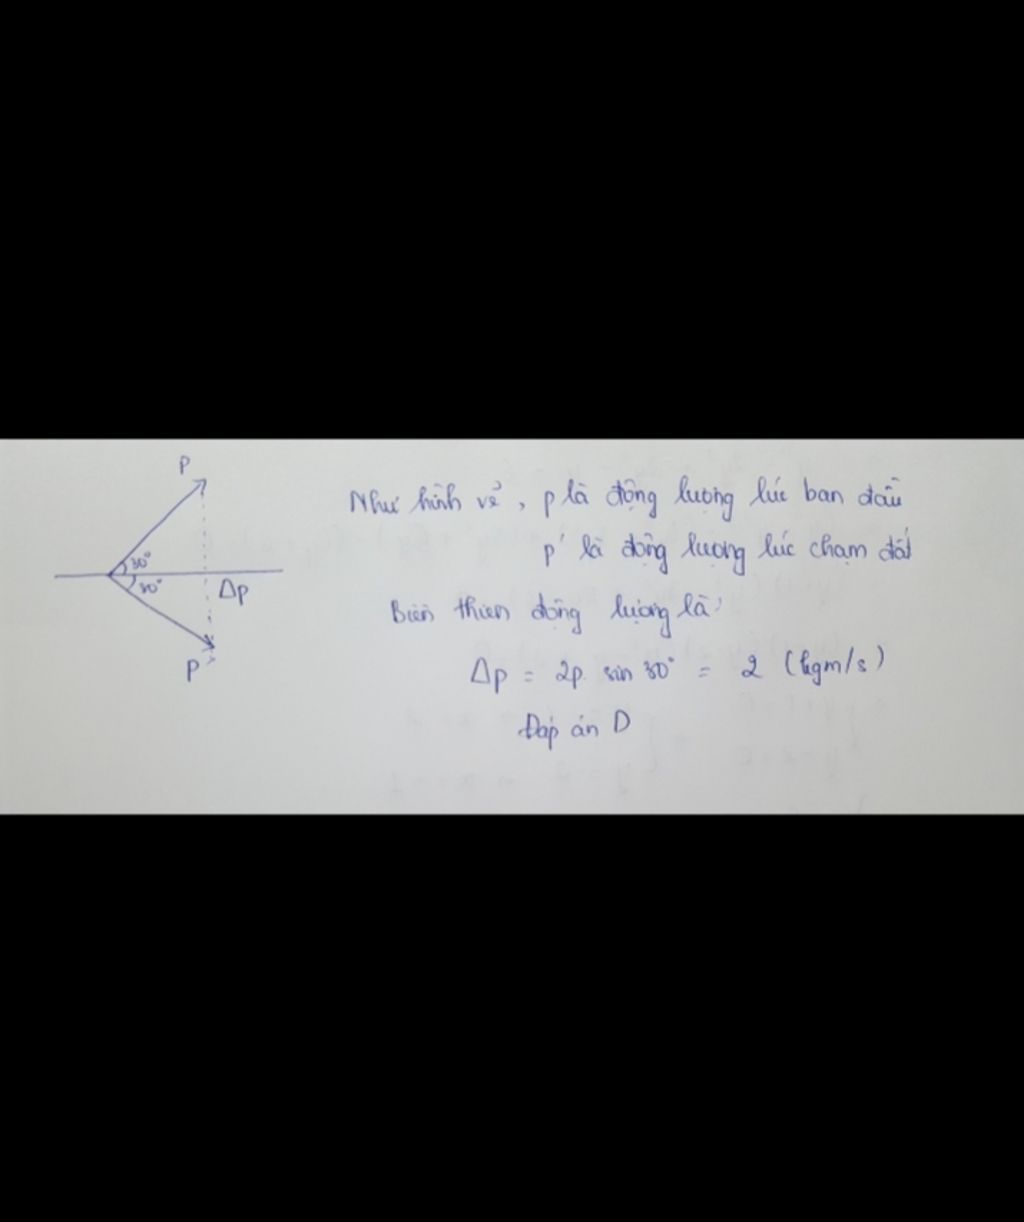 p
30°
30°
Δp
p'
Như hình vẽ, p là động lượng lúc ban đầu
p' là động lượng lúc chạm đất
Biến thiên động lượng là:
Δp = 2p. sin 30° = 2 (kgm/s)
Đáp án D